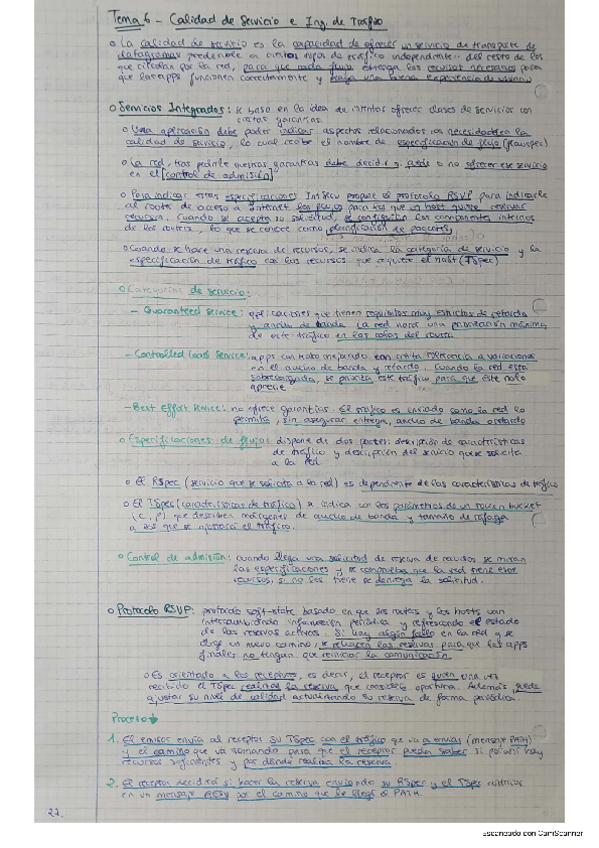 Tema 6 - Calidad de Servicio e Ing. de Tráfico
o La calidad de servicio es la capacidad de ofrecer un servicio de transporte de
datagramas predecible a ciertos tipos de tráfico independient. del resto de los
que circulan por la red, para que cada flujo obtenga los recursos necesarios para
que las apps funcionen correctamente y haya una buena experiencia de usuario.
o Servicios Integrados: se basa en la idea de intentar ofrecer clases de servicios con
ciertas garantías.
o Una aplicación debe poder indicar aspectos relacionados con necesidades de la
calidad de servicio, lo cual recibe el nombre de especificación de flujo (flowspec)
o La red, tras pedirle ciertas garantías debe decidir si puede o no ofrecer ese servicio
en el [control de admisión]
o Para indicar estas especificaciones IntServ propone el protocolo RSVP para indicarle
al router de acceso a internet los flujos para los que un host quiere reservar
recursos. Cuando se acepta su solicitud, se configuran los componentes internos
de los routers, lo que se conoce como planificación de paquetes.
o Cuando se hace una reserva de recursos, se indica la categoría de servicio y la
especificación de tráfico con los recursos que requiere el host (TSpec)
o Categorías de servicio:
- Guaranteed Service: aplicaciones que tienen requisitos muy estrictos de retardo
y ancho de banda. La red hará una priorización máxima
de este tráfico en las colas del router
- Controlled Load Service: apps con trato mejorado con cierta tolerancia a variaciones
en el ancho de banda y retardo. Cuando la red está
sobrecargada, se prioriza este tráfico para que éste no lo
aprecie
- Best Effort Service: no ofrece garantías. El tráfico es enviado como la red lo
permita, sin asegurar entrega, ancho de banda o retardo
o Especificaciones de flujos dispone de dos partes: descripción de características
de tráfico y descripción del servicio que se solicita
a la red.
o El RSpec (servicio que se solicita a la red) es dependiente de las características de tráfico
o El TSpec (características de tráfico) se indica con los parámetros de un token bucket
que describen márgenes de ancho de banda y tamaño de ráfaga
a los que se ajustará el tráfico.
o Control de admisión: cuando llega una solicitud de reserva de recursos se miran
las especificaciones y se comprueba que la red tiene esos
recursos, si no los tiene se deniega la solicitud.
o Protocolo RSVP: protocolo soft-state basado en que los routers y los hosts van
intercambiando información periódica y refrescando el estado
de las reservas activas. Si hay algún fallo en la red y se
elige un nuevo camino, se rehacen las reservas para que las apps
finales no tengan que reiniciar la comunicación
o Es orientado a los receptores, es decir, el receptor es quien una vez
recibido el TSpec realiza la reserva que considere oportuna. Además puede
ajustar su nivel de calidad actualizando su reserva de forma periódica.
Proceso ↓
1. El emisor envía al receptor su TSpec con el tráfico que va a enviar (mensaje PATH)
y el camino que va tomando para que el receptor pueda saber si por ahí hay
recursos suficientes y por dónde realiza la reserva.
2. El receptor decidirá si hacer la reserva enviando su RSpec y el TSpec
en un mensaje RESV por el camino que le llegó el PATH.
27.
Escaneado con CamScanner